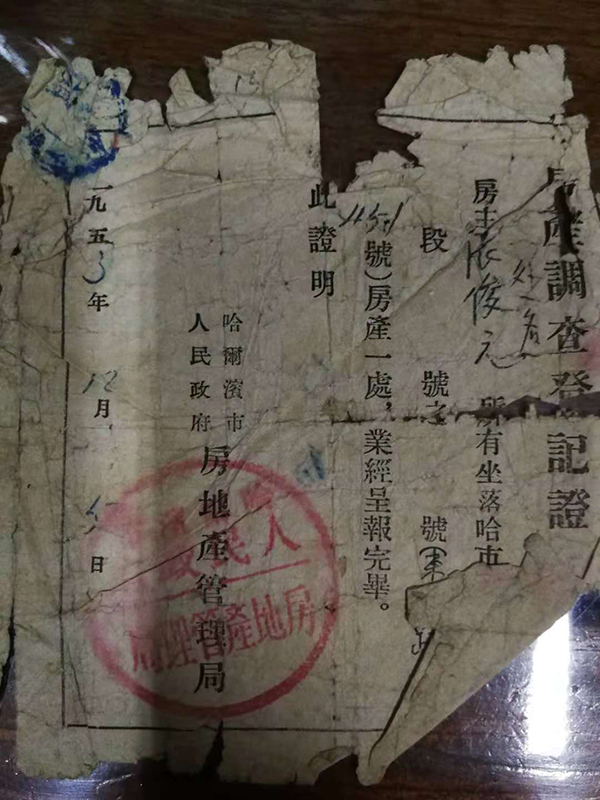 房產調查登記證
房主張俊元 所有坐落哈市
段 號之 號
號)房產一處，業經呈報完畢。
此證明
哈爾濱市
人民政府
房地產管理局
一九五3年 12月 日
人民
房地產管理局